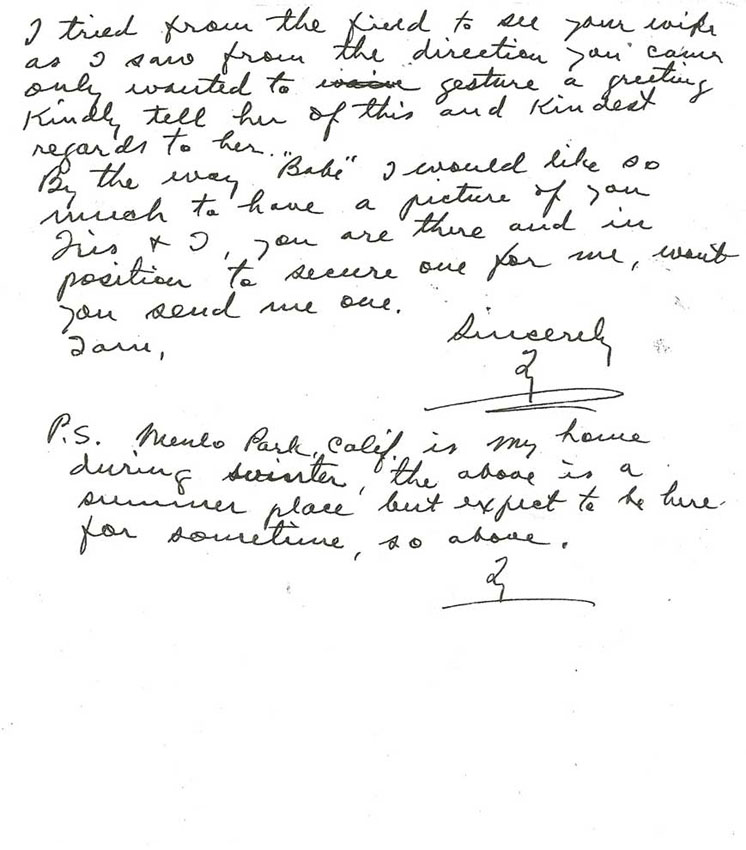 I tried from the field to see your wife
as I saw from the direction you came
only wanted to gesture a greeting
Kindly tell her of this and Kindest
regards to her.
By the way "Babe" I would like so
much to have a picture of you
Tris & I, you are there and in
position to secure one for me, wont
you send me one.
I am,
Sincerely
Ty
P.S. Menlo Park, Calif. is my home
during winter, the above is a
summer place but expect to be here
for sometime, so above.
Ty